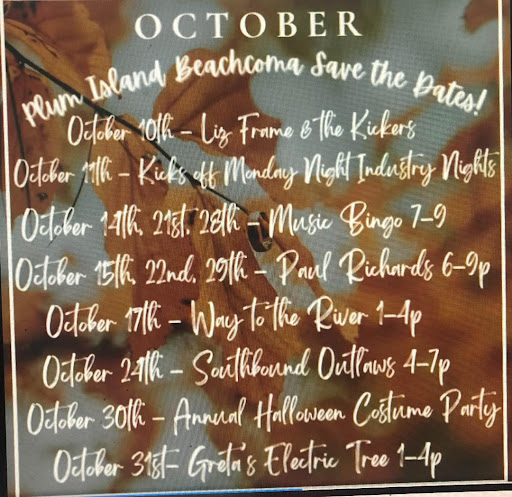 OCTOBER
Plum Island Beachcoma Save the Dates!
October 10th - Liz Frame & the Kickers
October 11th - Kicks off Monday Night Industry Nights
October 14th, 21st, 28th - Music Bingo 7-9
October 15th, 22nd, 29th - Paul Richards 6-9p
October 17th - Way to the River 1-4p
October 24th - Southbound Outlaws 4-7p
October 30th - Annual Halloween Costume Party
October 31st- Greta's Electric Tree 1-4p